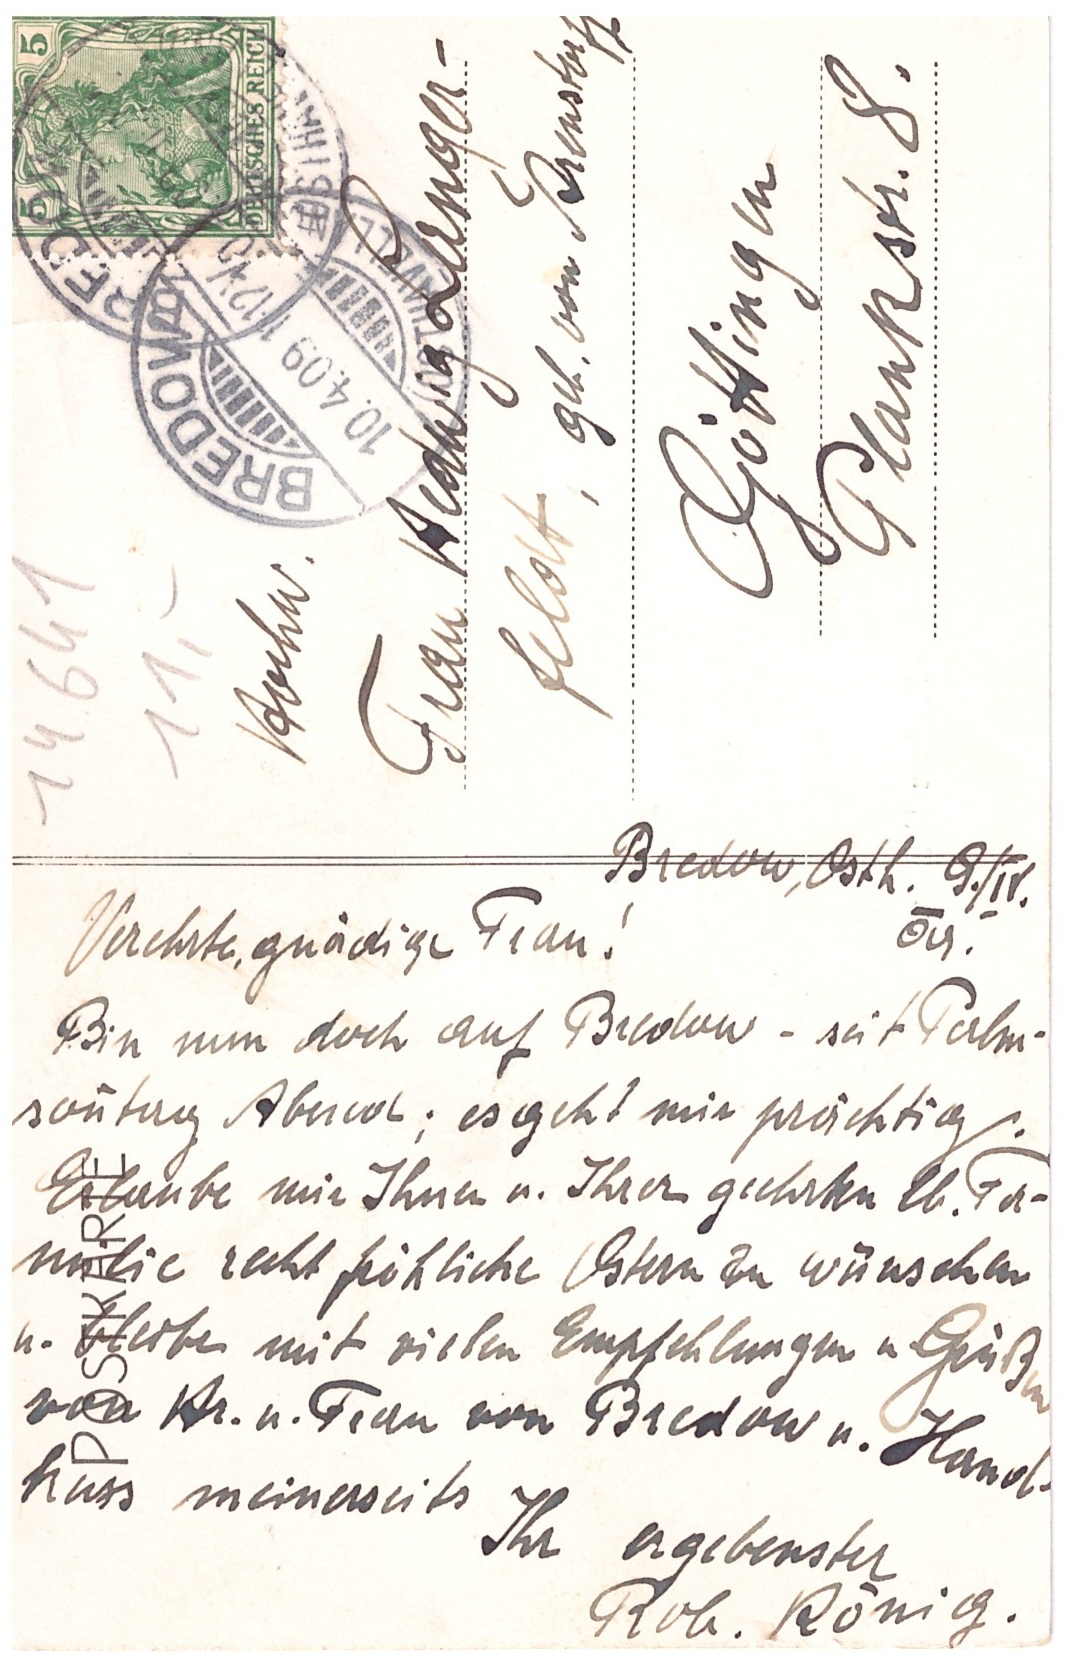 5 5
DEUTSCHES REICH
BREDOW
10.4.09 1-12V
14641
11,-
Hochw.
Frau Hedwig Langer-
feldt, geb. von
Göttingen
Plankstr. 8.
POSTKARTE
Bredow, Osth. 9./IV.
09.
Verehrte, gnädige Frau!
Bin nun doch auf Bredow - seit Palm-
sontag Abend; es geht mir prächtig.
Erlaube mir Ihnen u. Ihrer geehrten lb. Fa-
milie recht fröhliche Ostern zu wünschen
u. bleibe mit vielen Empfehlungen u Grüßen
von Hr. u. Frau von Bredow u. Hand-
kuss meinerseits
Ihr ergebenster
Rob. König.